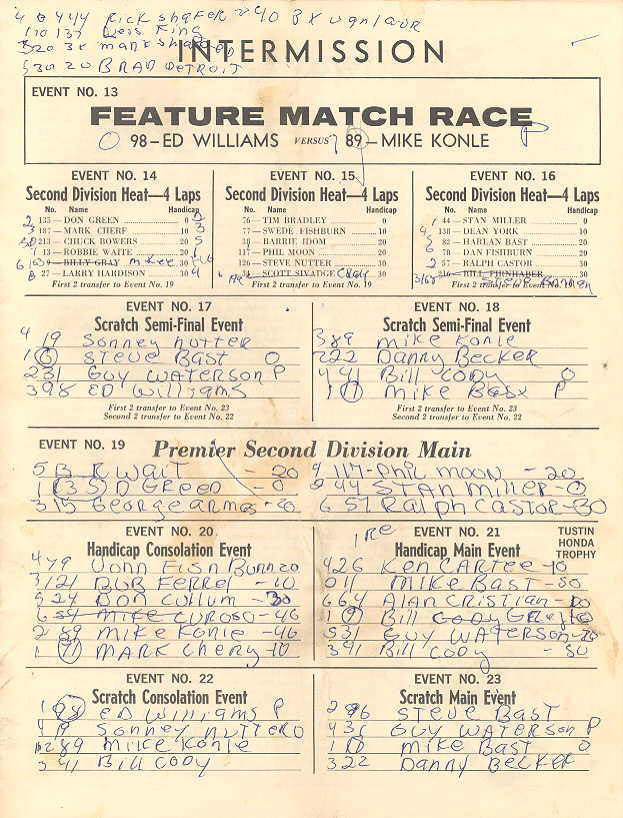 40 444 Rick Shafer
INTERMISSION
530 20 BRAD DETROIT
EVENT NO. 13
FEATURE MATCH RACE
O 98—ED WILLIAMS VERSUS 89—MIKE KONLE P
EVENT NO. 14
Second Division Heat—4 Laps
No. Name Handicap
135—DON GREEN 0
187—MARK CHERF 10
213—CHUCK BOWERS 20
13—ROBBIE WAITE 20
BILLY GRAY 30
27—LARRY HARDISON 30
First 2 transfer to Event No. 19
EVENT NO. 15
Second Division Heat—4 Laps
No. Name Handicap
76—TIM BRADLEY 0
77—SWEDE FISHBURN 10
BARRIE IDOM 20
117—PHIL MOON 20
126—STEVE NUTTER 30
SCOTT SIVADGE 30
First 2 transfer to Event No. 19
EVENT NO. 16
Second Division Heat—4 Laps
No. Name Handicap
44—STAN MILLER 0
138—DEAN YORK 10
82—HARLAN BAST 20
78—DAN FISHBURN 20
57—RALPH CASTOR 30
First 2 transfer to Event No. 19
EVENT NO. 17
Scratch Semi-Final Event
4 19 Sonney nutter
1 6 STEVE BAST O
2 31 GUY WATERSON P
3 98 ED Williams
First 2 transfer to Event No. 23
Second 2 transfer to Event No. 22
EVENT NO. 18
Scratch Semi-Final Event
3 89 Mike Konle
222 Danny Becker
4 41 Bill CODY O
1 11 Mike Bast P
First 2 transfer to Event No. 23
Second 2 transfer to Event No. 22
EVENT NO. 19 Premier Second Division Main
5 13 R WAIT - 20
1 135 D GREEN - 0
3 15 George armos - 20
4 117-Phil MOON - 20
2 44 STAN Miller - 0
6 57 Ralph CASTOR - 30
EVENT NO. 20
Handicap Consolation Event
4 79 Fish Burn 20
3 121 BOB FERREL - 10
5 24 DON CULLUM - 30
6 34 MIKE CUROSO - 40
2 89 MIKE KONLE - 40
1 MARK Chery - 10
EVENT NO. 21
Handicap Main Event
TUSTIN
HONDA
TROPHY
4 26 Ken CARTEE - 10
0 11 MIKE BAST - 50
6 64 Alan CRISTIAN
1 Bill Cody
5 31 GUY WATERSON
3 41 Bill Cody - 50
EVENT NO. 22
Scratch Consolation Event
1 98 ED Williams P
4 19 Sonney nutter O
2 89 Mike Konle
3 41 Bill CODY
EVENT NO. 23
Scratch Main Event
2 STEVE BAST
4 31 GUY WATERSON P
1 11 MIKE BAST O
3 22 DANNY BECKER